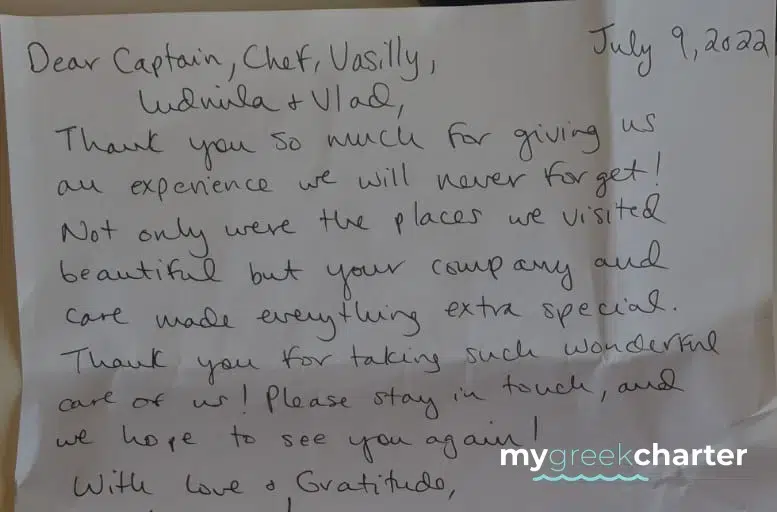 July 9, 2022
Dear Captain, Chef, Vasilly,
Ludmila & Vlad,
Thank you so much for giving us
an experience we will never forget!
Not only were the places we visited
beautiful but your company and
care made everything extra special.
Thank you for taking such wonderful
care of us! Please stay in touch, and
we hope to see you again!
With Love & Gratitude,
mygreekcharter